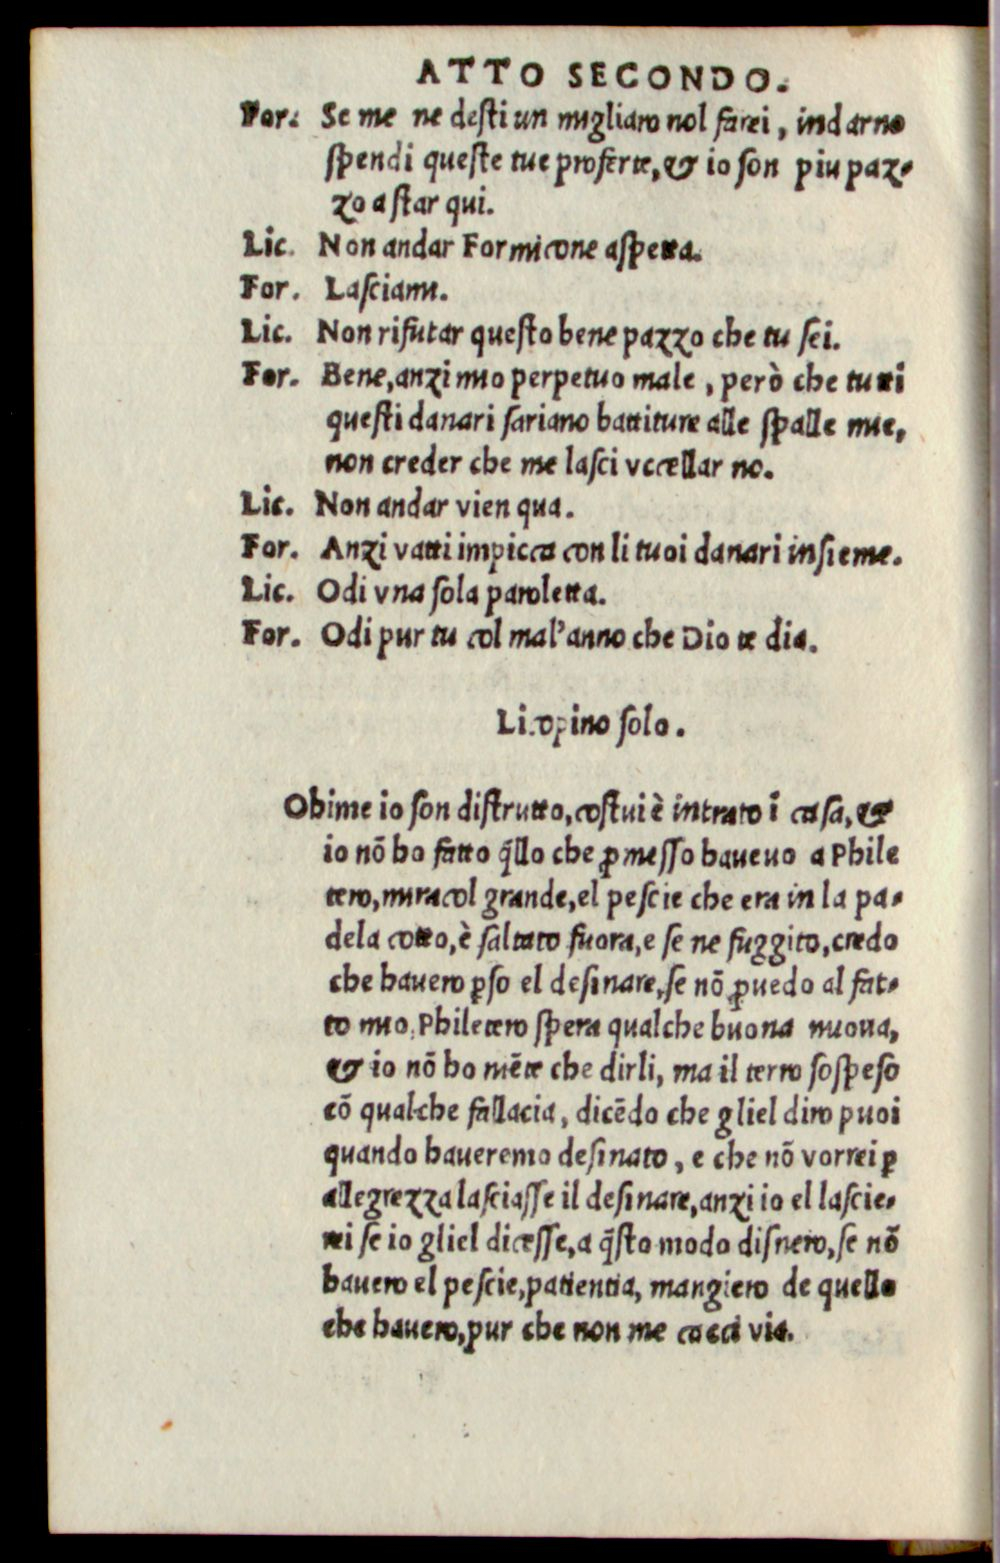 ATTO SECONDO.
For. Se me ne desti un migliaro nol farei, indarno
spendi queste tue proferte, & io son piu paz-
zo a star qui.
Lic. Non andar Formicone aspetta.
For. Lasciami.
Lic. Non rifutar questo bene pazzo che tu sei.
For. Bene, anzi mio perpetuo male, però che tutti
questi danari sariano battiture alle spalle mie,
non creder che me lasci vccellar no.
Lic. Non andar vien qua.
For. Anzi vatti impicca con li tuoi danari insieme.
Lic. Odi vna sola paroletta.
For. Odi pur tu col mal'anno che Dio te dia.
Licopino solo.
Ohime io son distrutto, costui è intrato ī casa, &
io nō ho fatto q̄llo che ꝓmesso haueuo a Phile
tero, miracol grande, el pescie che era in la pa-
dela cotto, è saltato fuora, e se ne fuggito, credo
che hauero ꝑso el desinare, se nō ꝓuedo al fat-
to mio, Philetero spera qualche buona nuoua,
& io nō ho niēte che dirli, ma il terro sospeso
cō qualche fallacia, dicēdo che gliel diro puoi
quando haueremo desinato, e che nō vorrei ꝑ
allegrezza lasciasse il desinare, anzi io el lascie-
rei se io gliel dicesse, a q̄sto modo disnero, se nō
hauero el pescie, patientia, mangiero de quello
che hauero, pur che non me cacci via.